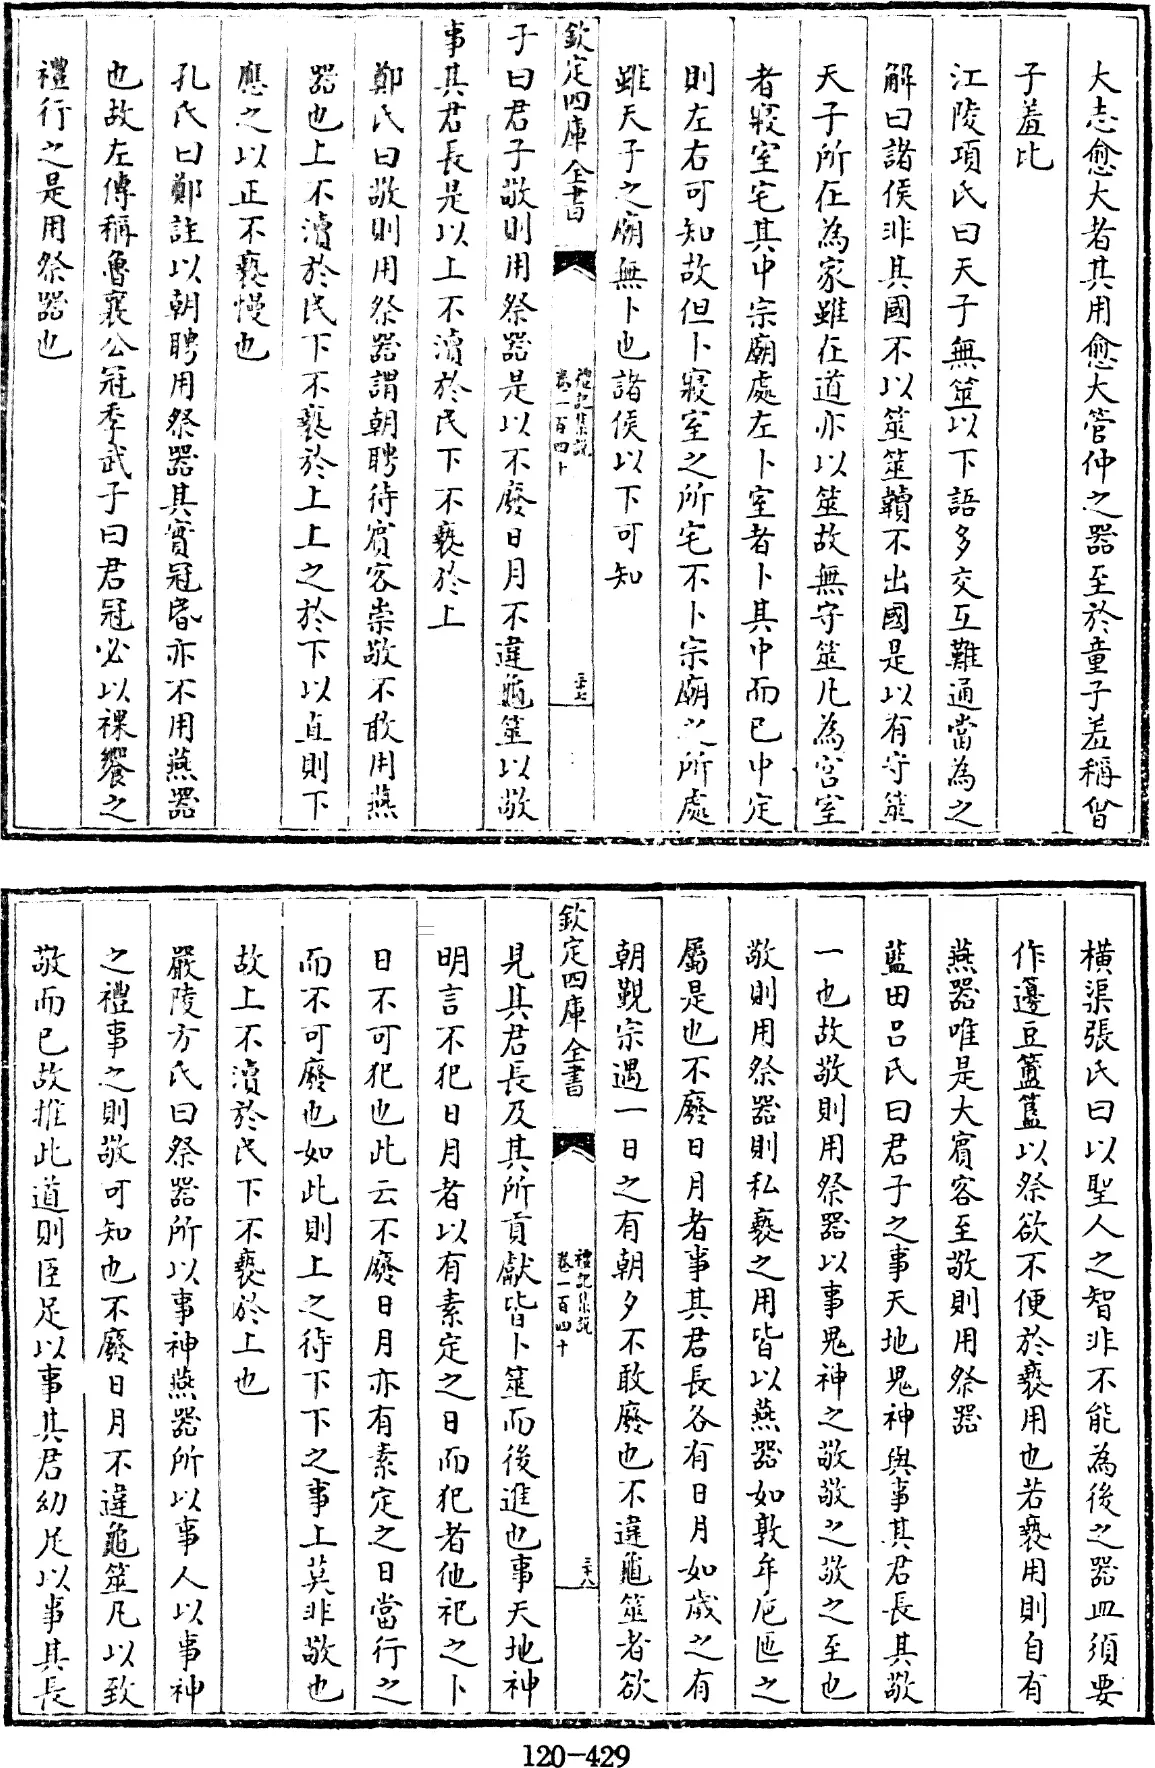 大志愈大者其用愈大管仲之器至於童子羞稱曾
子羞比
江陵項氏曰天子無筮以下語多交互難通當為之
解曰諸侯非其國不以筮筮韇不出國是以有守筮
天子所在為家雖在道亦以筮故無守筮凡為宫室
者寢室宅其中宗廟處左卜室者卜其中而已中定
則左右可知故但卜寢室之所宅不卜宗廟之所處
雖天子之廟無卜也諸侯以下可知
欽定四庫全書
禮記集說
卷一百四十
三十七
子曰君子敬則用祭器是以不廢日月不違龜筮以敬
事其君長是以上不瀆於民下不褻於上
鄭氏曰敬則用祭器謂朝聘待賓客崇敬不敢用燕
器也上不瀆於民下不褻於上上之於下以直則下
應之以正不褻慢也
孔氏曰鄭註以朝聘用祭器其實冠昏亦不用燕器
也故左傳稱魯襄公冠季武子曰君冠必以祼饗之
禮行之是用祭器也
橫渠張氏曰以聖人之智非不能為後之器皿須要
作籩豆簠簋以祭欲不便於褻用也若褻用則自有
燕器唯是大賓客至敬則用祭器
藍田吕氏曰君子之事天地鬼神與事其君長其敬
一也故敬則用祭器以事鬼神之敬敬之敬之至也
敬則用祭器則私褻之用皆以燕器如敦牟巵匜之
屬是也不廢日月者事其君長各有日月如歲之有
朝覲宗遇一日之有朝夕不敢廢也不違龜筮者欲
欽定四庫全書
禮記集說
卷一百四十
三十八
見其君長及其所貢獻皆卜筮而後進也事天地神
明言不犯日月者以有素定之日而犯者他祀之卜
日不可犯也此云不廢日月亦有素定之日當行之
而不可廢也如此則上之待下下之事上莫非敬也
故上不瀆於民下不褻於上也
嚴陵方氏曰祭器所以事神燕器所以事人以事神
之禮事之則敬可知也不廢日月不違龜筮凡以致
敬而已故推此道則臣足以事其君幼足以事其長
120-429